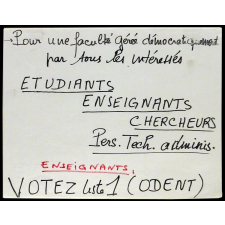 → Pour une faculté gérée démocratiquement
par tous les intéressés
ETUDIANTS
ENSEIGNANTS
CHERCHEURS
Pers. Tech. adminis.
ENSEIGNANTS,
VOTEZ liste 1 (ODENT)